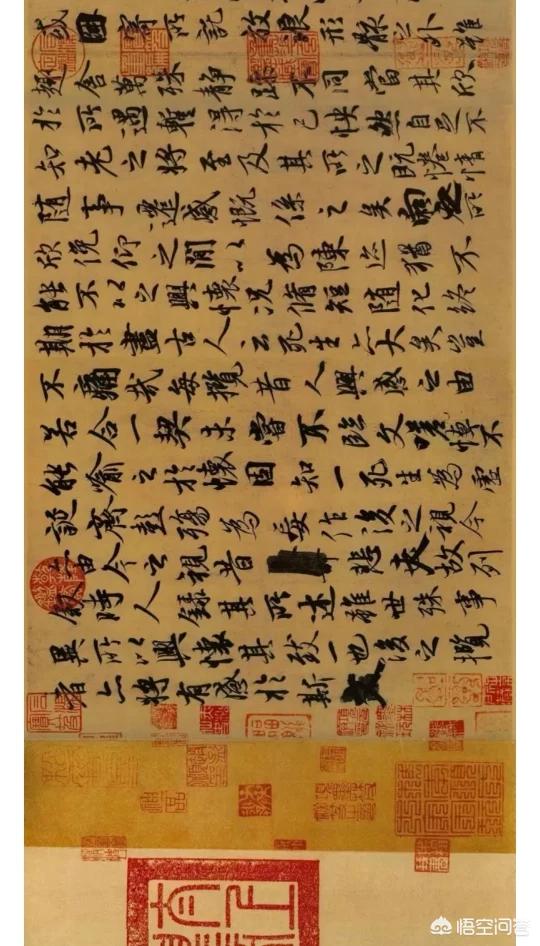 或因寄所託放浪形骸之外雖
趣舍萬殊靜躁不同當其欣
於所遇蹔得於己怏然自足不
知老之將至及其所之既惓情
隨事遷感慨係之矣向之所
欣俛仰之閒以為陳迹猶不
能不以之興懷況脩短隨化終
期於盡古人云死生亦大矣豈
不痛哉每攬昔人興感之由
若合一契未嘗不臨文嗟悼不
能喻之於懷固知一死生為虛
誕齊彭殤為妄作後之視今
亦由今之視昔悲夫故列
敘時人錄其所述雖世殊事
異所以興懷其致一也後之攬
者亦將有感於斯文
悟空问答